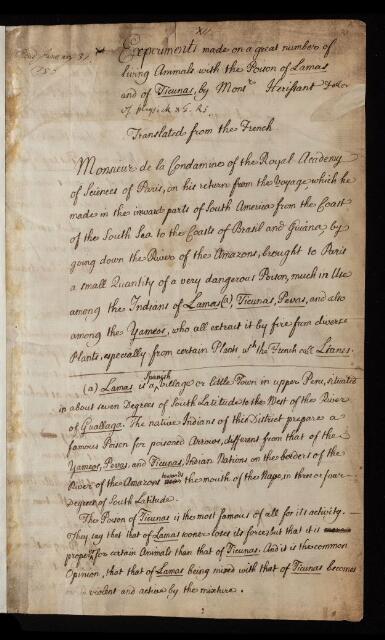 XII.
Experiments made on a great number of
living Animals with the Poison of Lamas
and of Ticunas, by Monsr Herissant Doctor
of Physick & F. R.S.
Translated from the French
Monsieur de la Condamine of the Royal Academy
of Sciences of Paris, on his return from the Voyage, which he
made in the inward parts of South America from the Coast
of the South Sea to the Coasts of Brasil and Guiana by
going down the River of the Amazons, brought to Paris
a small Quantity of a very dangerous Poison, much in Use
among the Indians of Lamas (a) Ticunas, Pevas, and also
among the Yameos, who all extract it by fire from diverse
Plants, especially from certain Plants wch the French call Lianes.
(a) Lamas is a Spanish village or little Town in upper Peru, situated
in about seven Degrees of South Latitude to the West of the River
of Guallaga. The native Indians of this District prepare a
famous Poison for poisoned Arrows, different from that of the
Yameos, Pevas, and Ticunas, Indian Nations on the borders of the
River of the Amazons towards the mouth of the Napo, in three or four
Degrees of South Latitude.
The Poison of Ticunas is the most famous of all for its activity.
They say that that of Lamas sooner loses its force, but that it is
properer for certain Animals than that of Ticunas. And it is the common
Opinion, that that of Lamas being mixed with that of Ticunas becomes
more violent and active by the mixture.